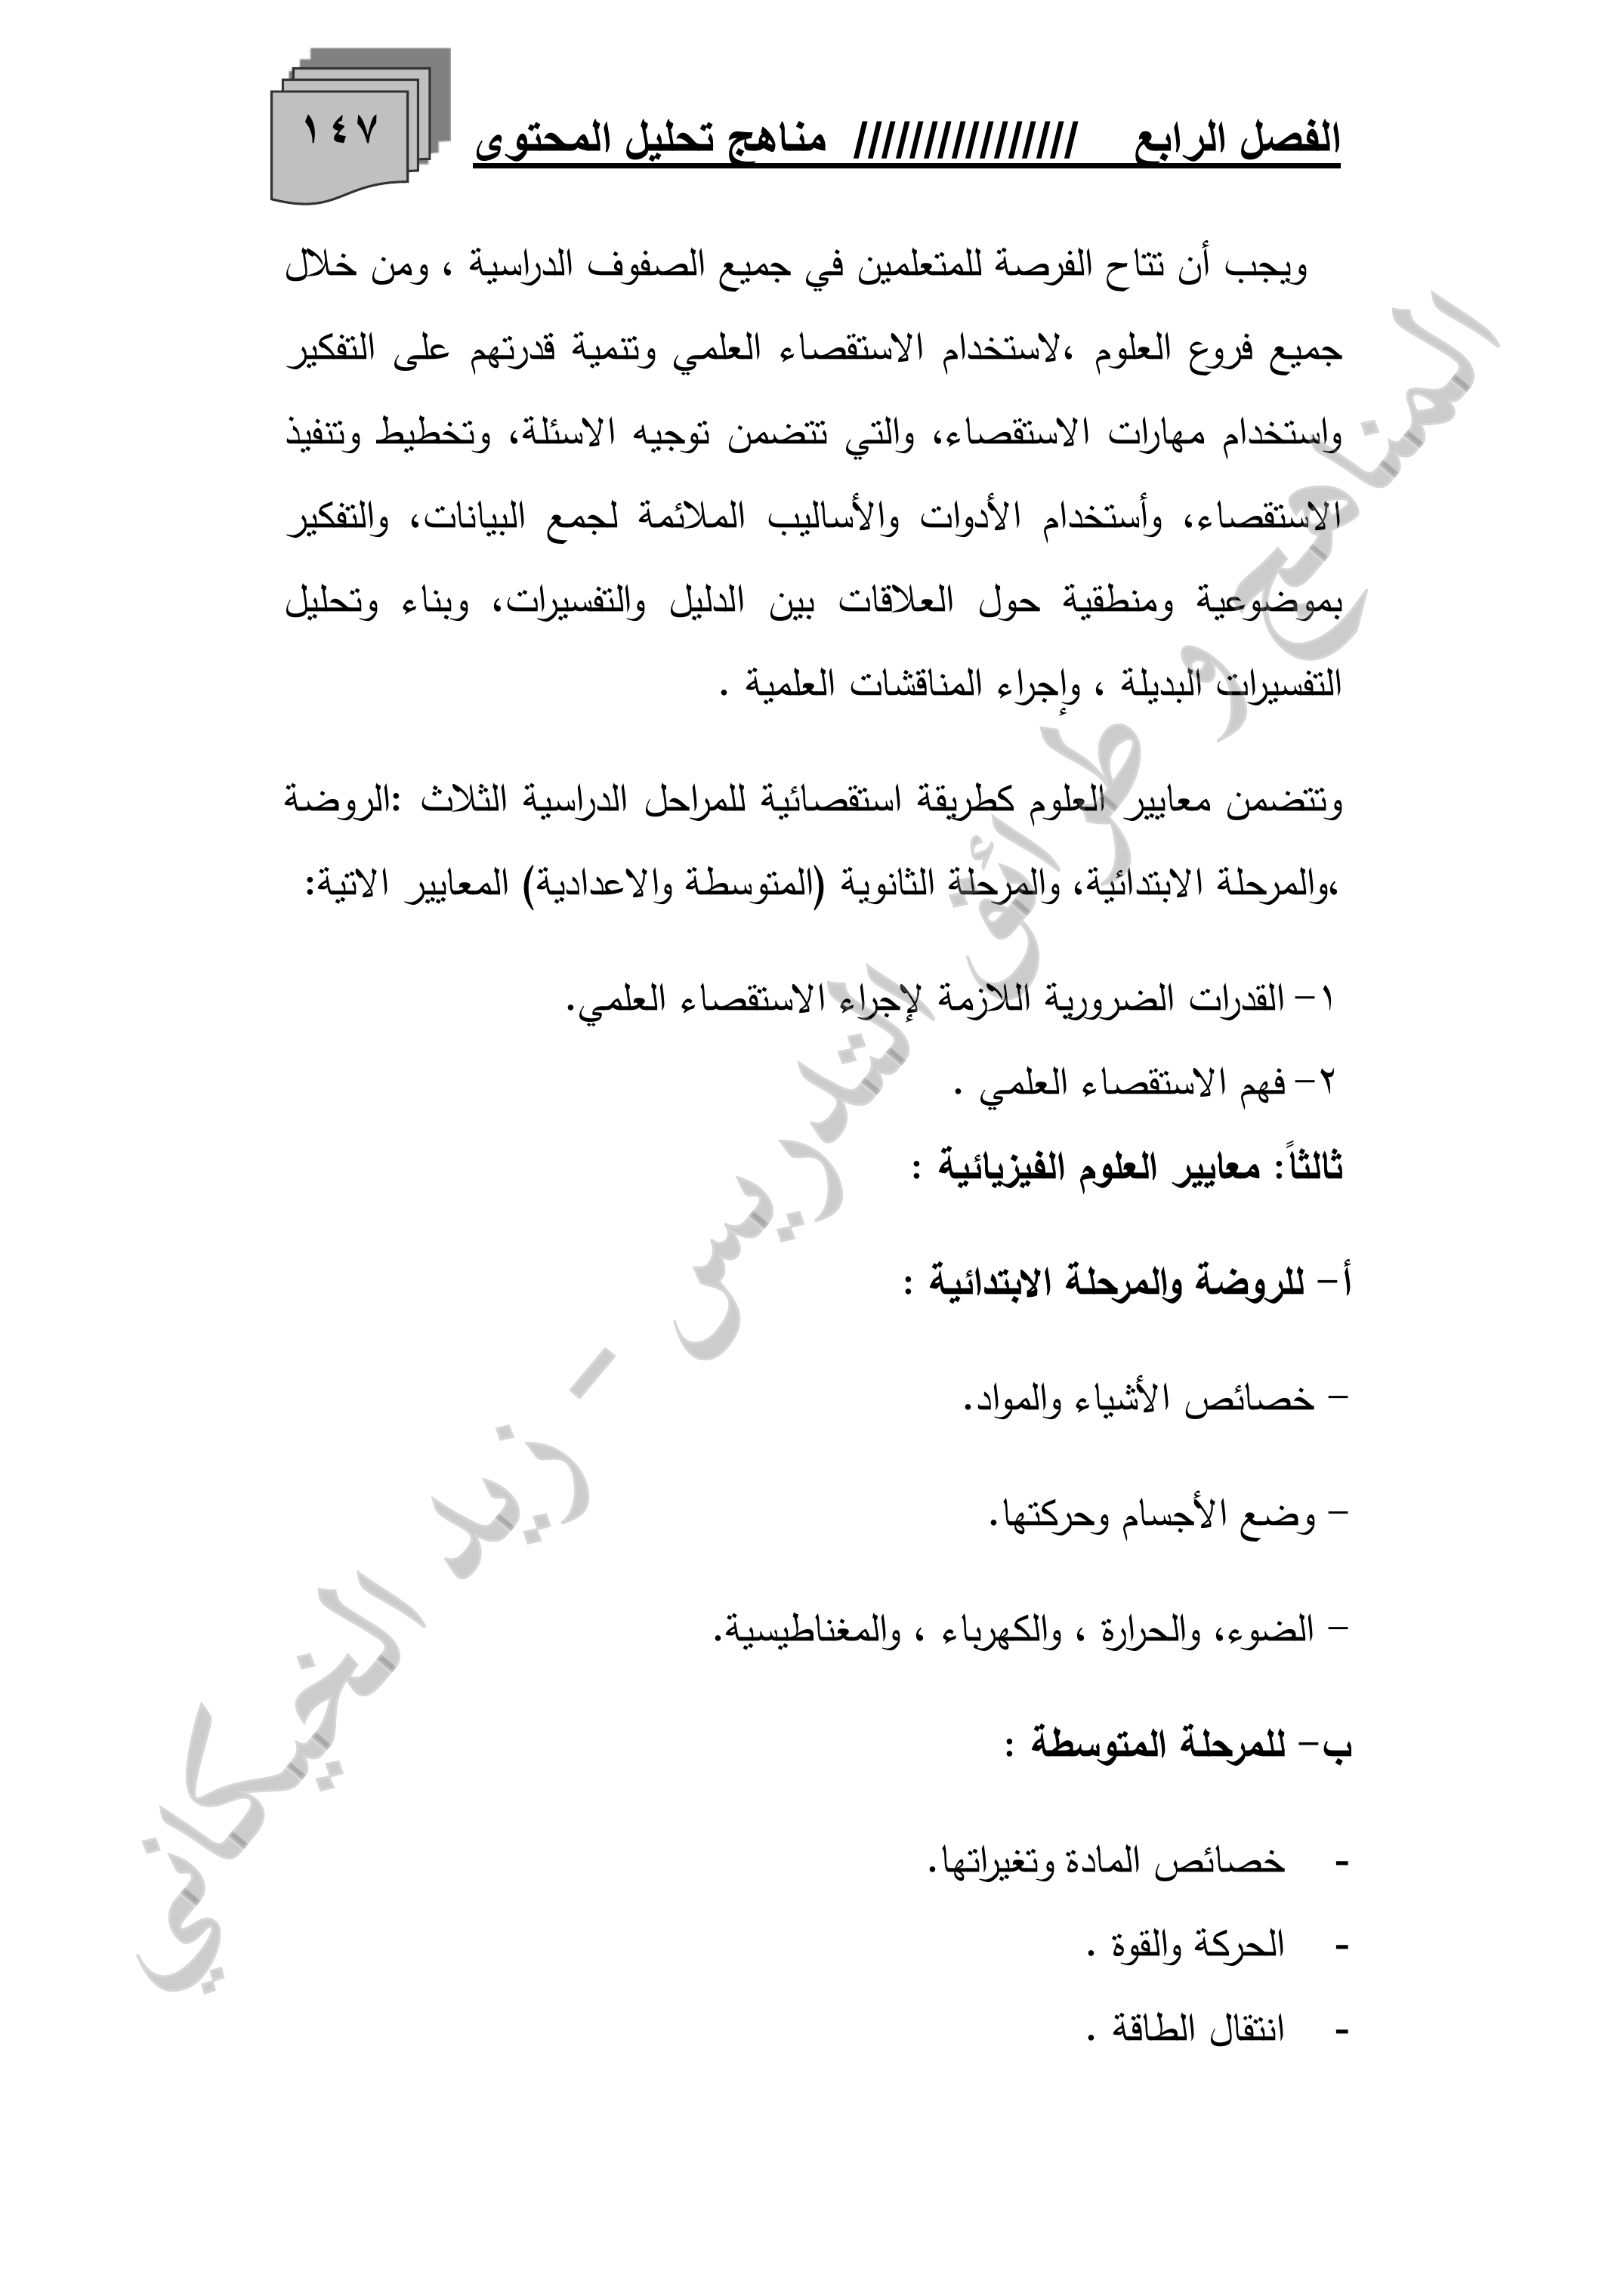 الفصل الرابع //////////////// مناهج تحليل المحتوى
١٤٧
ويجب أن تتاح الفرصة للمتعلمين في جميع الصفوف الدراسية ، ومن خلال
جميع فروع العلوم ،لاستخدام الاستقصاء العلمي وتنمية قدرتهم على التفكير
واستخدام مهارات الاستقصاء، والتي تتضمن توجيه الاسئلة، وتخطيط وتنفيذ
الاستقصاء، وأستخدام الأدوات والأساليب الملائمة لجمع البيانات، والتفكير
بموضوعية ومنطقية حول العلاقات بين الدليل والتفسيرات، وبناء وتحليل
التفسيرات البديلة ، وإجراء المناقشات العلمية .
وتتضمن معايير العلوم كطريقة استقصائية للمراحل الدراسية الثلاث :الروضة
،والمرحلة الابتدائية، والمرحلة الثانوية (المتوسطة والاعدادية) المعايير الاتية:
١- القدرات الضرورية اللازمة لإجراء الاستقصاء العلمي.
٢- فهم الاستقصاء العلمي .
ثالثاً: معايير العلوم الفيزيائية :
أ- للروضة والمرحلة الابتدائية :
- خصائص الأشياء والمواد.
- وضع الأجسام وحركتها.
- الضوء، والحرارة ، والكهرباء ، والمغناطيسية.
ب- للمرحلة المتوسطة :
- خصائص المادة وتغيراتها.
- الحركة والقوة .
- انتقال الطاقة .
المناهج و طرائق التدريس - زيد الخيكاني